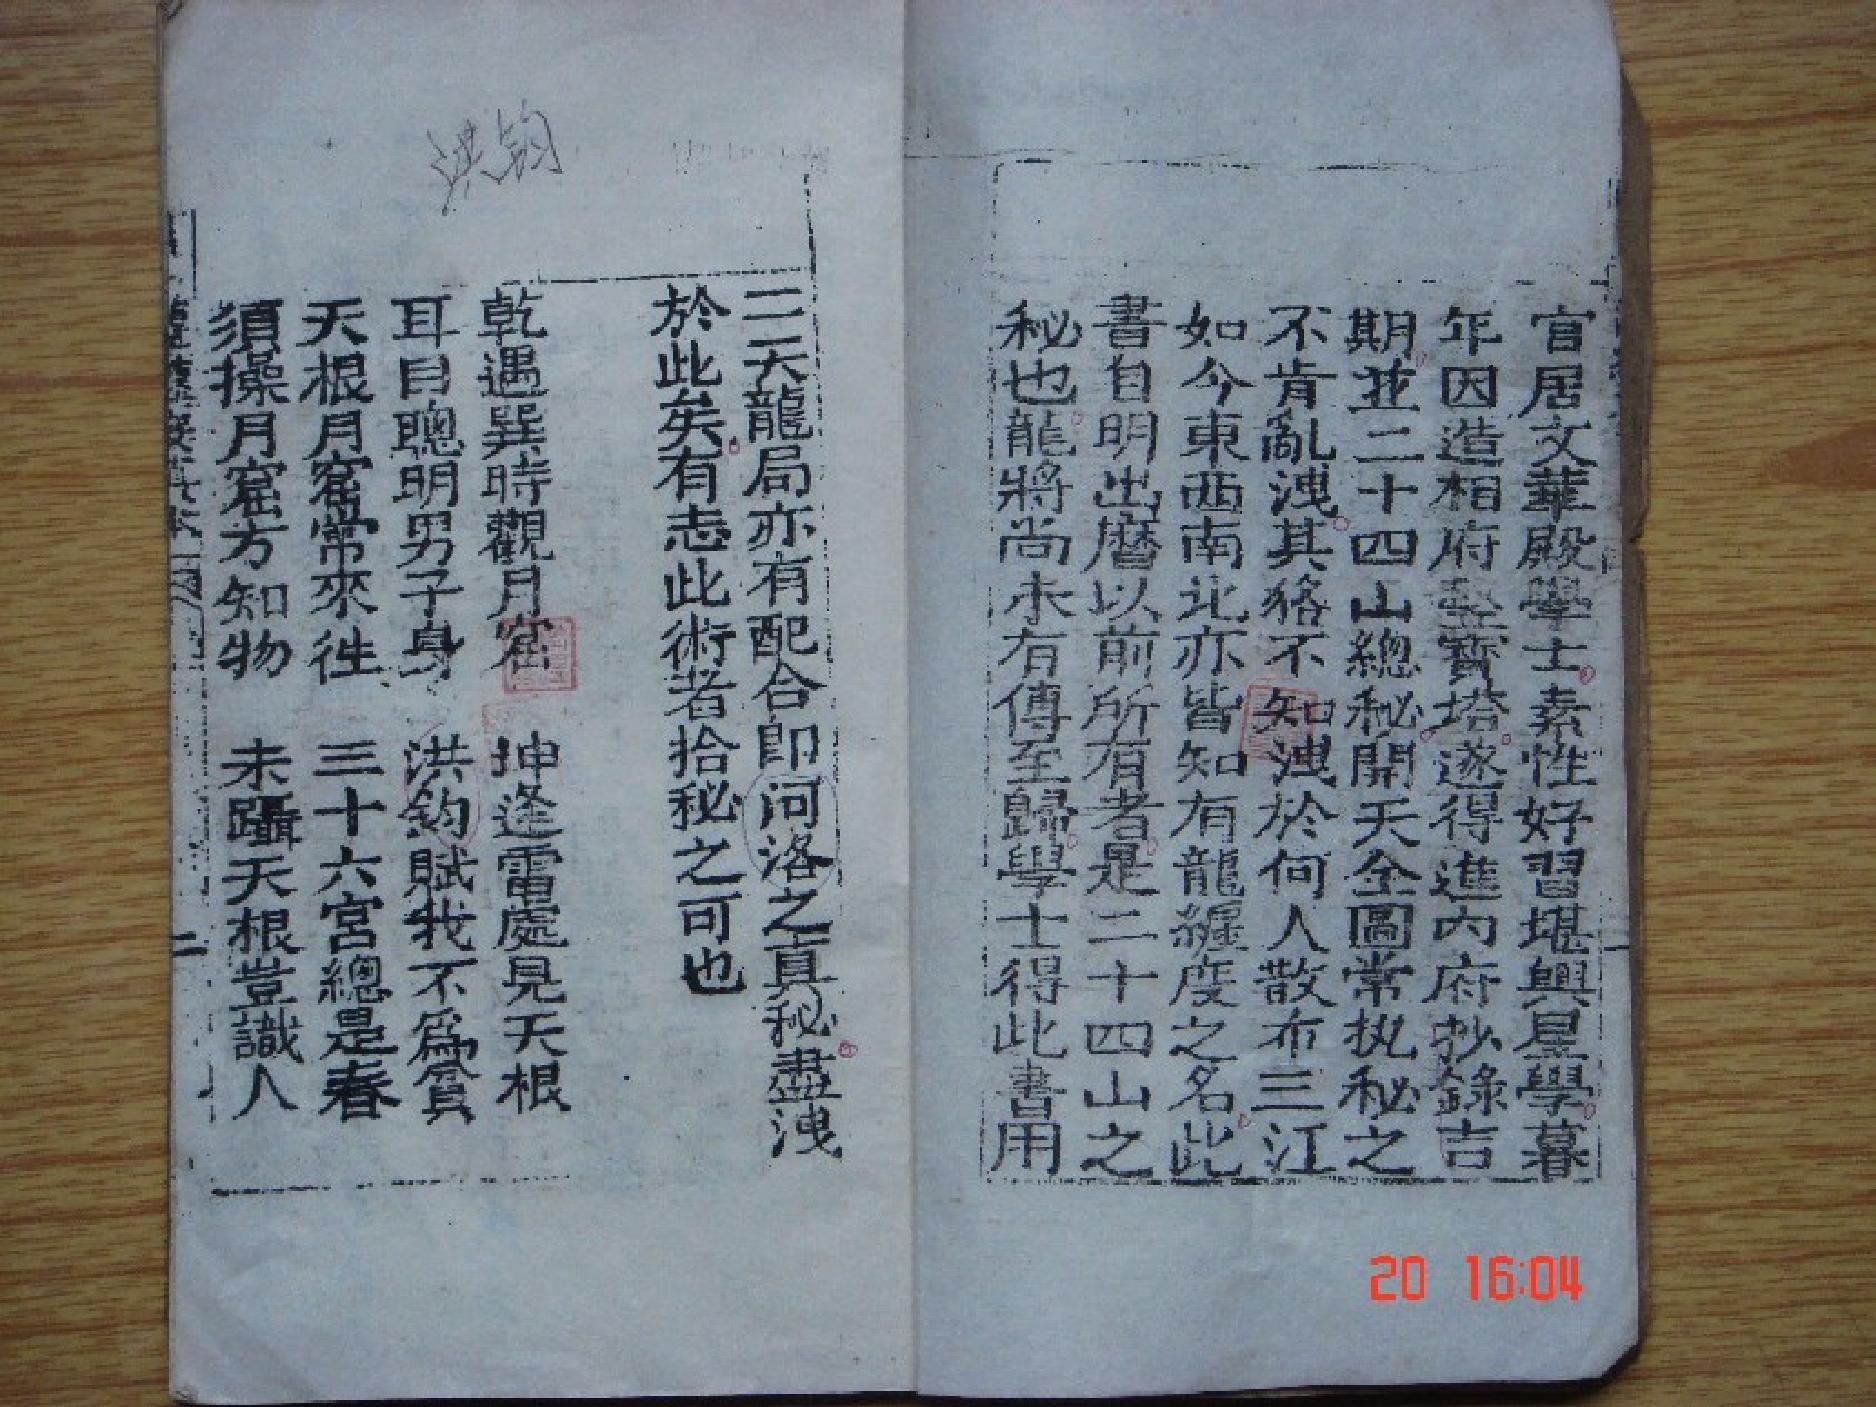 官居文華殿學士素性好習堪輿星學暮
年因造相府聖寶塔遂得進內府抄錄吉
期並二十四山總秘開天全圖常执秘之
不肯亂洩其穞不知洩於何人散布三江
如今東西南北亦皆知有龍纏度之名此
書自明出曆以前所有者是二十四山之
秘也龍將尚未有傳至歸學士得此書用
二天龍局亦有配合即河洛之真秘盡洩
於此矣有志此術者拾秘之可也
乾遇巽時觀月窟 坤逢雷處見天根
耳目聰明男子身 洪鈞賦我不為貧
天根月窟常來徃 三十六宮總是春
須探月窟方知物 未躡天根豈識人
洪鈞
二
20 16:04